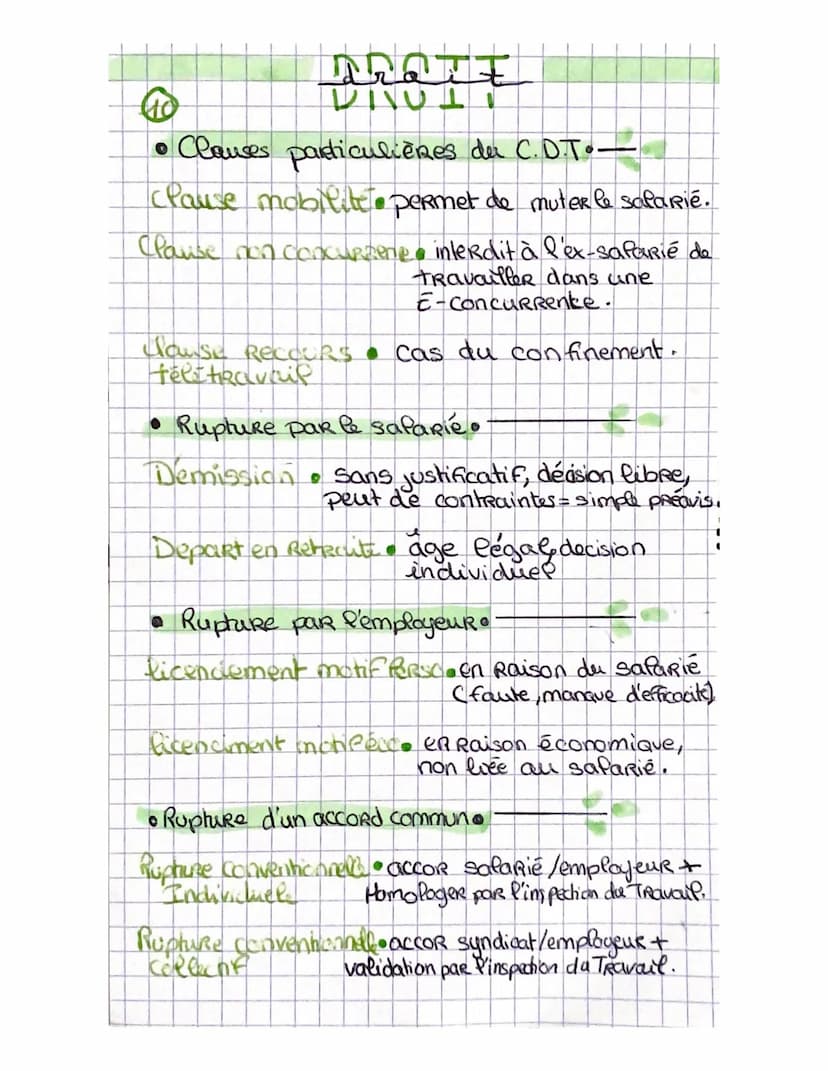 DROIT
droit
10
• Clauses particulières du C.D.T •
Clause mobilité • permet de muter le salarié.
Clause non concurrene • interdit à l'ex-salarié de
travailler dans une
E-concurrente.
Clause Recours • cas du confinement.
télétravail
• Rupture par le salarié •
Démission • sans justificatif, décision libre,
peut de contraintes = simple préavis.
Depart en Retraite • âge légal, decision
individuel
• Rupture par l'employeur •
licenciement motif Perso • en raison du salarié
(faute, manque d'efficacité)
licenciment motif éco • en raison économique,
non liée au salarié.
• Rupture d'un accord commun •
Rupture conventionnelle • accor salarié/employeur +
Individuel Homologer par l'inspection du Travail.
Rupture conventionnelle • accor syndicat/employeur +
collectif validation par l'inspection du Travail.